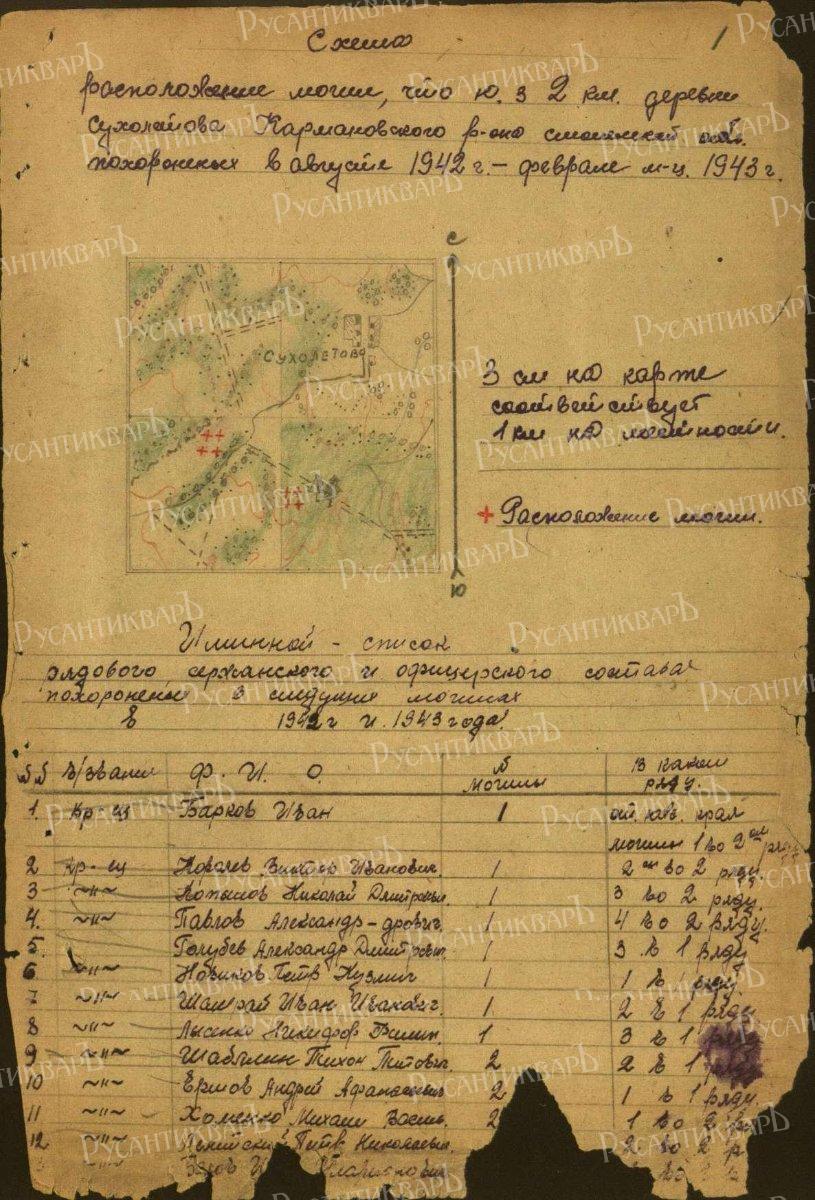 Схема
1
расположение могил, что ю. з 2 км. деревни
Сухолетова Кармановского р-она смоленской обл.
похороненых в августе 1942 г. – феврале м-ц. 1943 г.
С
СУХОЛЕТОВО
3 см на карте
соответствует
1 км на местности.
+ Расположение могил.
Ю
Именной – список
рядового сержанского и офицерского состава
похоронены в следущих могилах
в 1942 г и 1943 года
№№ В/звание Ф. И. О. № могилы В каком ряду.
1. Кр-ец Барков Иван 1
могилы 1 во 2ом ряду
2 Кр-ец Виктор Иванович. 1 2ой во 2 ряду.
3 ~"~ Копылов Николай Дмитровыч. 1 3 во 2 ряду.
4. ~"~ Павлов Александр-дрович. 1 4 во 2 ряду.
5. ~"~ Голубев Александр Дмитревич. 1 3 в 1 ряду
6 ~"~ Новиков Петр Кузмич 1 1 в 1 ряду
7 ~"~ Иван Иванович. 1 2 в 1 ряду
8 ~"~ Лысенко Никифор Филип. 1 3 в 1 ряду
9 ~"~ Шаблин Тихон Титович. 2 2 в 1 ряду
10 ~"~ Ершов Андрей Афанасьевич 2 1 в 1 ряду
11 ~"~ Хоменко Михаил Василь. 2 1 во 2 р.
12 ~"~ Петр Николаевич. 2 во 2 р
РусАнтикварЪ